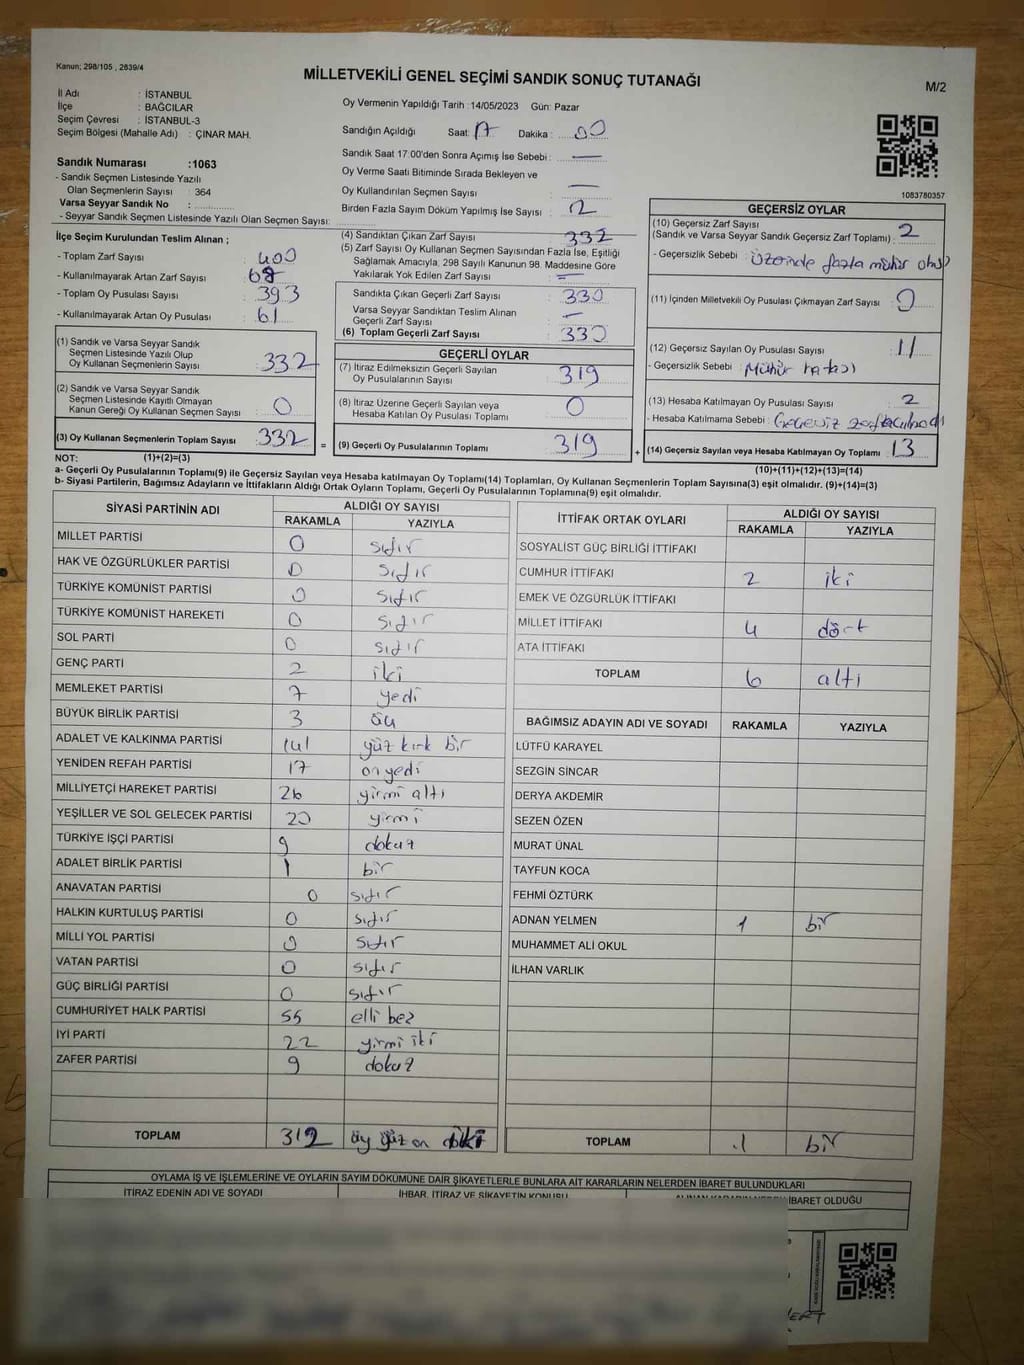 Kanun; 298/105 , 2839/4
MİLLETVEKİLİ GENEL SEÇİMİ SANDIK SONUÇ TUTANAĞI
M/2
İl Adı : İSTANBUL
İlçe : BAĞCILAR
Seçim Çevresi : İSTANBUL-3
Seçim Bölgesi (Mahalle Adı) : ÇINAR MAH.
Sandık Numarası :1063
- Sandık Seçmen Listesinde Yazılı
Olan Seçmenlerin Sayısı : 364
Varsa Seyyar Sandık No :
- Seyyar Sandık Seçmen Listesinde Yazılı Olan Seçmen Sayısı:
Oy Vermenin Yapıldığı Tarih :14/05/2023 Gün: Pazar
Sandığın Açıldığı Saat: 17 Dakika : 00
Sandık Saat 17:00'den Sonra Açımış İse Sebebi : —
Oy Verme Saati Bitiminde Sırada Bekleyen ve
Oy Kullandırılan Seçmen Sayısı —
Birden Fazla Sayım Döküm Yapılmış İse Sayısı : 2
1083780357
İlçe Seçim Kurulundan Teslim Alınan ;
- Toplam Zarf Sayısı : 400
- Kullanılmayarak Artan Zarf Sayısı : 68
- Toplam Oy Pusulası Sayısı : 393
- Kullanılmayarak Artan Oy Pusulası : 61
(1) Sandık ve Varsa Seyyar Sandık
Seçmen Listesinde Yazılı Olup
Oy Kullanan Seçmenlerin Sayısı : 332
(2) Sandık ve Varsa Seyyar Sandık
Seçmen Listesinde Kayıtlı Olmayan
Kanun Gereği Oy Kullanan Seçmen Sayısı : 0
(3) Oy Kullanan Seçmenlerin Toplam Sayısı : 332 =
(4) Sandıktan Çıkan Zarf Sayısı : 332
(5) Zarf Sayısı Oy Kullanan Seçmen Sayısından Fazla İse, Eşitliği
Sağlamak Amacıyla, 298 Sayılı Kanunun 98. Maddesine Göre
Yakılarak Yok Edilen Zarf Sayısı : —
Sandıkta Çıkan Geçerli Zarf Sayısı : 330
Varsa Seyyar Sandıktan Teslim Alınan
Geçerli Zarf Sayısı : —
(6) Toplam Geçerli Zarf Sayısı : 330
GEÇERLİ OYLAR
(7) İtiraz Edilmeksizin Geçerli Sayılan
Oy Pusulalarının Sayısı : 319
(8) İtiraz Üzerine Geçerli Sayılan veya
Hesaba Katılan Oy Pusulası Toplamı : 0
(9) Geçerli Oy Pusulalarının Toplamı : 319 +
GEÇERSİZ OYLAR
(10) Geçersiz Zarf Sayısı
(Sandık ve Varsa Seyyar Sandık Geçersiz Zarf Toplamı) : 2
- Geçersizlik Sebebi : üzerinde fazla mühür
(11) İçinden Milletvekili Oy Pusulası Çıkmayan Zarf Sayısı : 0
(12) Geçersiz Sayılan Oy Pusulası Sayısı : 11
- Geçersizlik Sebebi : Mühür hatası
(13) Hesaba Katılmayan Oy Pusulası Sayısı : 2
- Hesaba Katılmama Sebebi :
(14) Geçersiz Sayılan veya Hesaba Katılmayan Oy Toplamı : 13
NOT: (1)+(2)=(3)
(10)+(11)+(12)+(13)=(14)
a- Geçerli Oy Pusulalarının Toplamı(9) ile Geçersiz Sayılan veya Hesaba katılmayan Oy Toplamı(14) Toplamları, Oy Kullanan Seçmenlerin Toplam Sayısına(3) eşit olmalıdır. (9)+(14)=(3)
b- Siyasi Partilerin, Bağımsız Adayların ve İttifakların Aldığı Ortak Oyların Toplamı, Geçerli Oy Pusulalarının Toplamına(9) eşit olmalıdır.
SİYASİ PARTİNİN ADI ALDIĞI OY SAYISI
RAKAMLA YAZIYLA
MİLLET PARTİSİ 0 sıfır
HAK VE ÖZGÜRLÜKLER PARTİSİ 0 sıfır
TÜRKİYE KOMÜNİST PARTİSİ 0 sıfır
TÜRKİYE KOMÜNİST HAREKETİ 0 sıfır
SOL PARTİ 0 sıfır
GENÇ PARTİ 2 iki
MEMLEKET PARTİSİ 7 yedi
BÜYÜK BİRLİK PARTİSİ 3 üç
ADALET VE KALKINMA PARTİSİ 141 yüz kırk bir
YENİDEN REFAH PARTİSİ 17 on yedi
MİLLİYETÇİ HAREKET PARTİSİ 26 yirmi altı
YEŞİLLER VE SOL GELECEK PARTİSİ 20 yirmi
TÜRKİYE İŞÇİ PARTİSİ 9 dokuz
ADALET BİRLİK PARTİSİ 1 bir
ANAVATAN PARTİSİ 0 sıfır
HALKIN KURTULUŞ PARTİSİ 0 sıfır
MİLLİ YOL PARTİSİ 0 sıfır
VATAN PARTİSİ 0 sıfır
GÜÇ BİRLİĞİ PARTİSİ 0 sıfır
CUMHURİYET HALK PARTİSİ 55 elli beş
İYİ PARTİ 22 yirmi iki
ZAFER PARTİSİ 9 dokuz
TOPLAM 312 üç yüz on iki
İTTİFAK ORTAK OYLARI ALDIĞI OY SAYISI
RAKAMLA YAZIYLA
SOSYALİST GÜÇ BİRLİĞİ İTTİFAKI
CUMHUR İTTİFAKI 2 iki
EMEK VE ÖZGÜRLÜK İTTİFAKI
MİLLET İTTİFAKI 4 dört
ATA İTTİFAKI
TOPLAM 6 altı
BAĞIMSIZ ADAYIN ADI VE SOYADI RAKAMLA YAZIYLA
LÜTFÜ KARAYEL
SEZGİN SİNCAR
DERYA AKDEMİR
SEZEN ÖZEN
MURAT ÜNAL
TAYFUN KOCA
FEHMİ ÖZTÜRK
ADNAN YELMEN 1 bir
MUHAMMET ALİ OKUL
İLHAN VARLIK
TOPLAM 1 bir
OYLAMA İŞ VE İŞLEMLERİNE VE OYLARIN SAYIM DÖKÜMÜNE DAİR ŞİKAYETLERLE BUNLARA AİT KARARLARIN NELERDEN İBARET BULUNDUKLARI
İTİRAZ EDENİN ADI VE SOYADI
İHBAR, İTİRAZ VE ŞİKAYETİN KONUSU
İBARET OLDUĞU